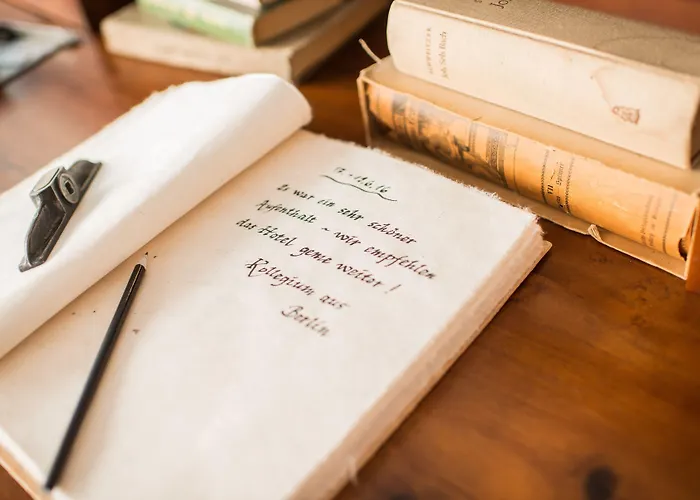 Es war ein sehr schöner
Aufenthalt ~ wir empfehlen
das Hotel gerne weiter!
Kollegium aus
Berlin
Joh. Seb. Bach
VII